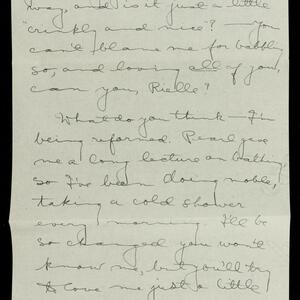 way, and is it just a little
"crinkly and nice"? — You
can't blame me for babbling
so, and loving all of you,
can you, Rielle?
What do you think — I'm
being reformed. Pearl gave
me a long lecture on bathing,
so I've been doing noble,
taking a cold shower
every morning. I'll be
so changed you won't
know me, but you'll try
to love me just a little